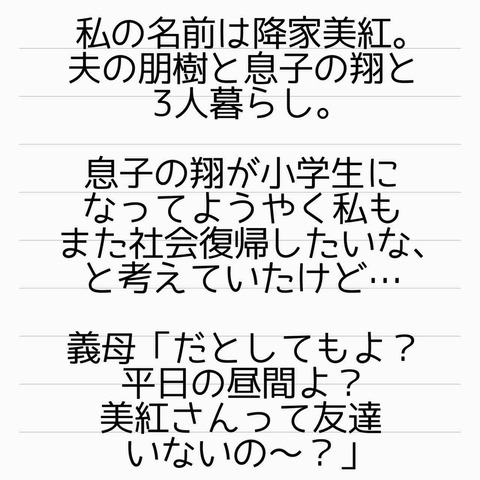 私の名前は降家美紅。
夫の朋樹と息子の翔と
3人暮らし。
息子の翔が小学生に
なってようやく私も
また社会復帰したいな、
と考えていたけど…
義母「だとしてもよ？
平日の昼間よ？
美紅さんって友達
いないの〜？」